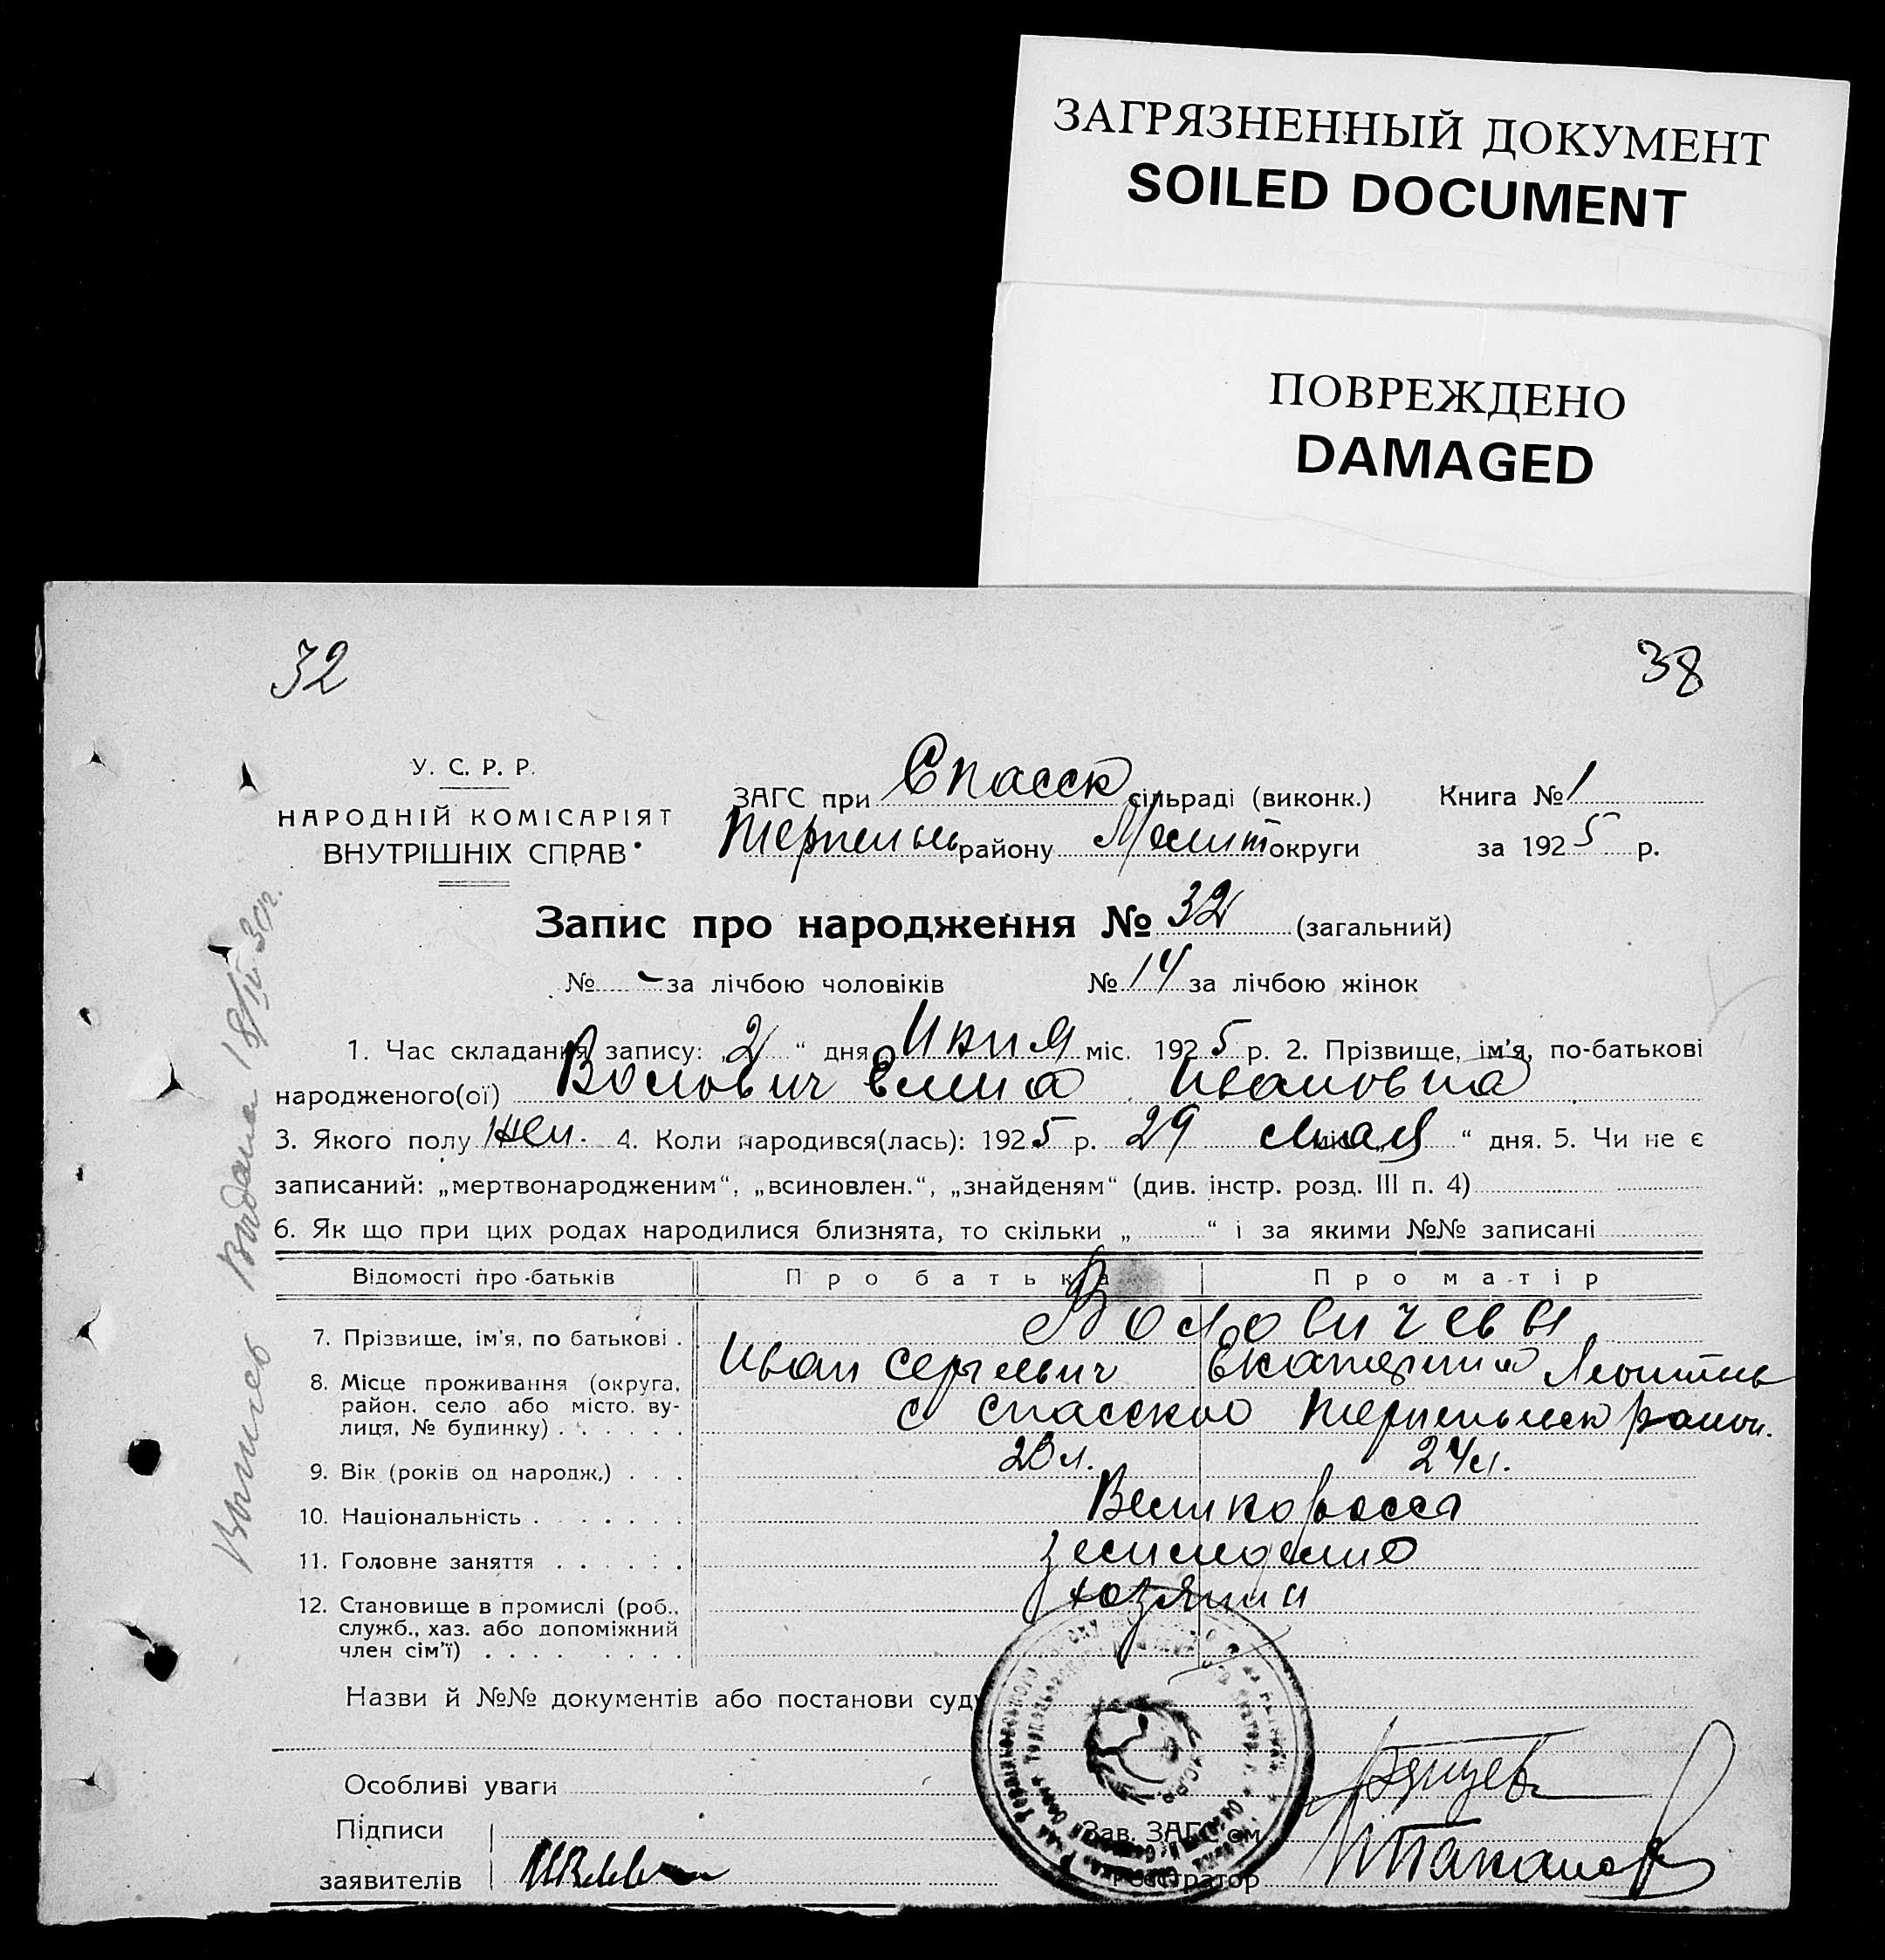 ЗАГРЯЗНЕННЫЙ ДОКУМЕНТ
SOILED DOCUMENT
ПОВРЕЖДЕНО
DAMAGED
32 38
У. С. Р. Р.
НАРОДНІЙ КОМІСАРІЯТ
ВНУТРІШНІХ СПРАВ
ЗАГС при Спасск сільраді (виконк.) Книга № 1
району Мелит округи за 1925 р.
Запис про народження № 32 (загальний)
№ - за лічбою чоловіків № 14 за лічбою жінок
1. Час складання запису: 2 “ дня Июня міс. 1925 р. 2. Прізвище, ім'я, по-батькові
народженого(ої) Волович Елена Ивановна
3. Якого полу жен. 4. Коли народився(лась): 1925 р. 29 мая “ дня. 5. Чи не є
записаний: „мертвонародженим“, „всиновлен.“, „знайденям“ (див. інстр. розд. III п. 4)
6. Як що при цих родах народилися близнята, то скільки „ “ і за якими №№ записані
Відомості про батьків Про батька Про матір
7. Прізвище, ім'я, по батькові . Воловичевы
Иван Сергеевич Екатерина
8. Місце проживання (округа,
район, село або місто, ву-
лиця, № будинку) . . . . . . с Спасское район.
9. Вік (років од народж.) . . . 24л.
10. Національність . . . . . . . Великоросся
11. Головне заняття . . . . . .
12. Становище в промислі (роб.,
служб., хаз. або допоміжний
член сім'ї) . . . . . . . . . хозяин
Назви й №№ документів або постанови суду
Особливі уваги
Підписи
заявителів
Зав. ЗАГС'ом
Реєстратор
Выдана 18/IV 30г.